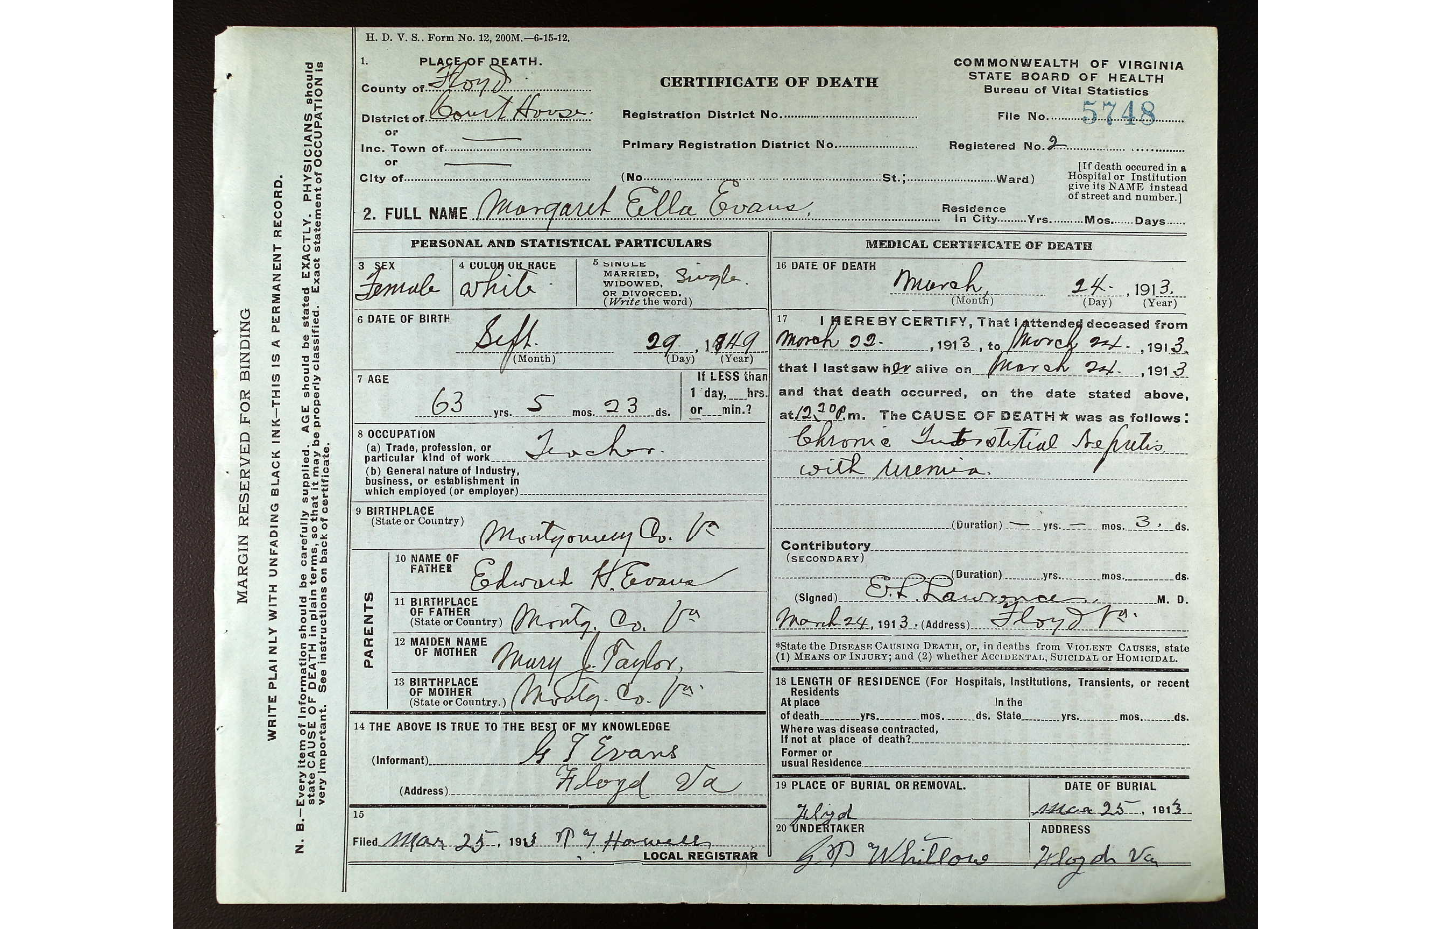 H. D. V. S.. Form No. 12, 200M.—6-15-12.
1. PLACE OF DEATH.
County of Floyd
District of Court House.
or
Inc. Town of
or
City of
CERTIFICATE OF DEATH
Registration District No.
Primary Registration District No.
(No. St.; Ward)
COMMONWEALTH OF VIRGINIA
STATE BOARD OF HEALTH
Bureau of Vital Statistics
File No. 5748
Registered No. 2
[If death occured in a
Hospital or Institution
give its NAME instead
of street and number.]
2. FULL NAME Margaret Ella Evans,
Residence
In City Yrs. Mos. Days
PERSONAL AND STATISTICAL PARTICULARS
3 SEX
Female
4 COLOR OR RACE
White
5 SINGLE
MARRIED,
WIDOWED,
OR DIVORCED.
(Write the word)
Single.
6 DATE OF BIRTH
Sept. 29, 1849
(Month) (Day) (Year)
7 AGE
63 yrs. 5 mos. 23 ds.
If LESS than
1 day, hrs.
or min.?
8 OCCUPATION
(a) Trade, profession, or
particular kind of work Teacher.
(b) General nature of Industry,
business, or establishment in
which employed (or employer)
9 BIRTHPLACE
(State or Country)
Montgomery Co. Va
PARENTS
10 NAME OF
FATHER
Edward H. Evans
11 BIRTHPLACE
OF FATHER
(State or Country)
Montg. Co. Va
12 MAIDEN NAME
OF MOTHER
Mary J. Taylor,
13 BIRTHPLACE
OF MOTHER
(State or Country.)
Montg. Co. Va.
14 THE ABOVE IS TRUE TO THE BEST OF MY KNOWLEDGE
(Informant) G T Evans
(Address) Floyd Va
15
Filed Mar 25, 1913 Howell
LOCAL REGISTRAR
MEDICAL CERTIFICATE OF DEATH
16 DATE OF DEATH
March, 24, 1913.
(Month) (Day) (Year)
17 I HEREBY CERTIFY, That I attended deceased from
March 22, 1913, to March 24, 1913,
that I last saw her alive on March 24, 1913
and that death occurred, on the date stated above,
at 12,30 P.m. The CAUSE OF DEATH★ was as follows:
Chronic Interstitial Nepritis
with uremia.
(Duration) — yrs. — mos. 3. ds.
Contributory
(SECONDARY)
(Duration) yrs. mos. ds.
(Signed) E. L. Lawrence M. D.
March 24, 1913. (Address) Floyd Va.
*State the DISEASE CAUSING DEATH, or, in deaths from VIOLENT CAUSES, state
(1) MEANS OF INJURY; and (2) whether ACCIDENTAL, SUICIDAL or HOMICIDAL.
18 LENGTH OF RESIDENCE (For Hospitals, Institutions, Transients, or recent
Residents
At place In the
of death yrs. mos. ds. State yrs. mos. ds.
Where was disease contracted,
If not at place of death?
Former or
usual Residence
19 PLACE OF BURIAL OR REMOVAL.
Floyd
DATE OF BURIAL
Mar 25, 1913
20 UNDERTAKER
Whitlow
ADDRESS
Floyd Va
MARGIN RESERVED FOR BINDING
WRITE PLAINLY WITH UNFADING BLACK INK—THIS IS A PERMANENT RECORD.
N. B.—Every item of Information should be carefully supplied. AGE should be stated EXACTLY. PHYSICIANS should
state CAUSE OF DEATH in plain terms, so that it may be properly classified. Exact statement of OCCUPATION is
very important. See instructions on back of certificate.